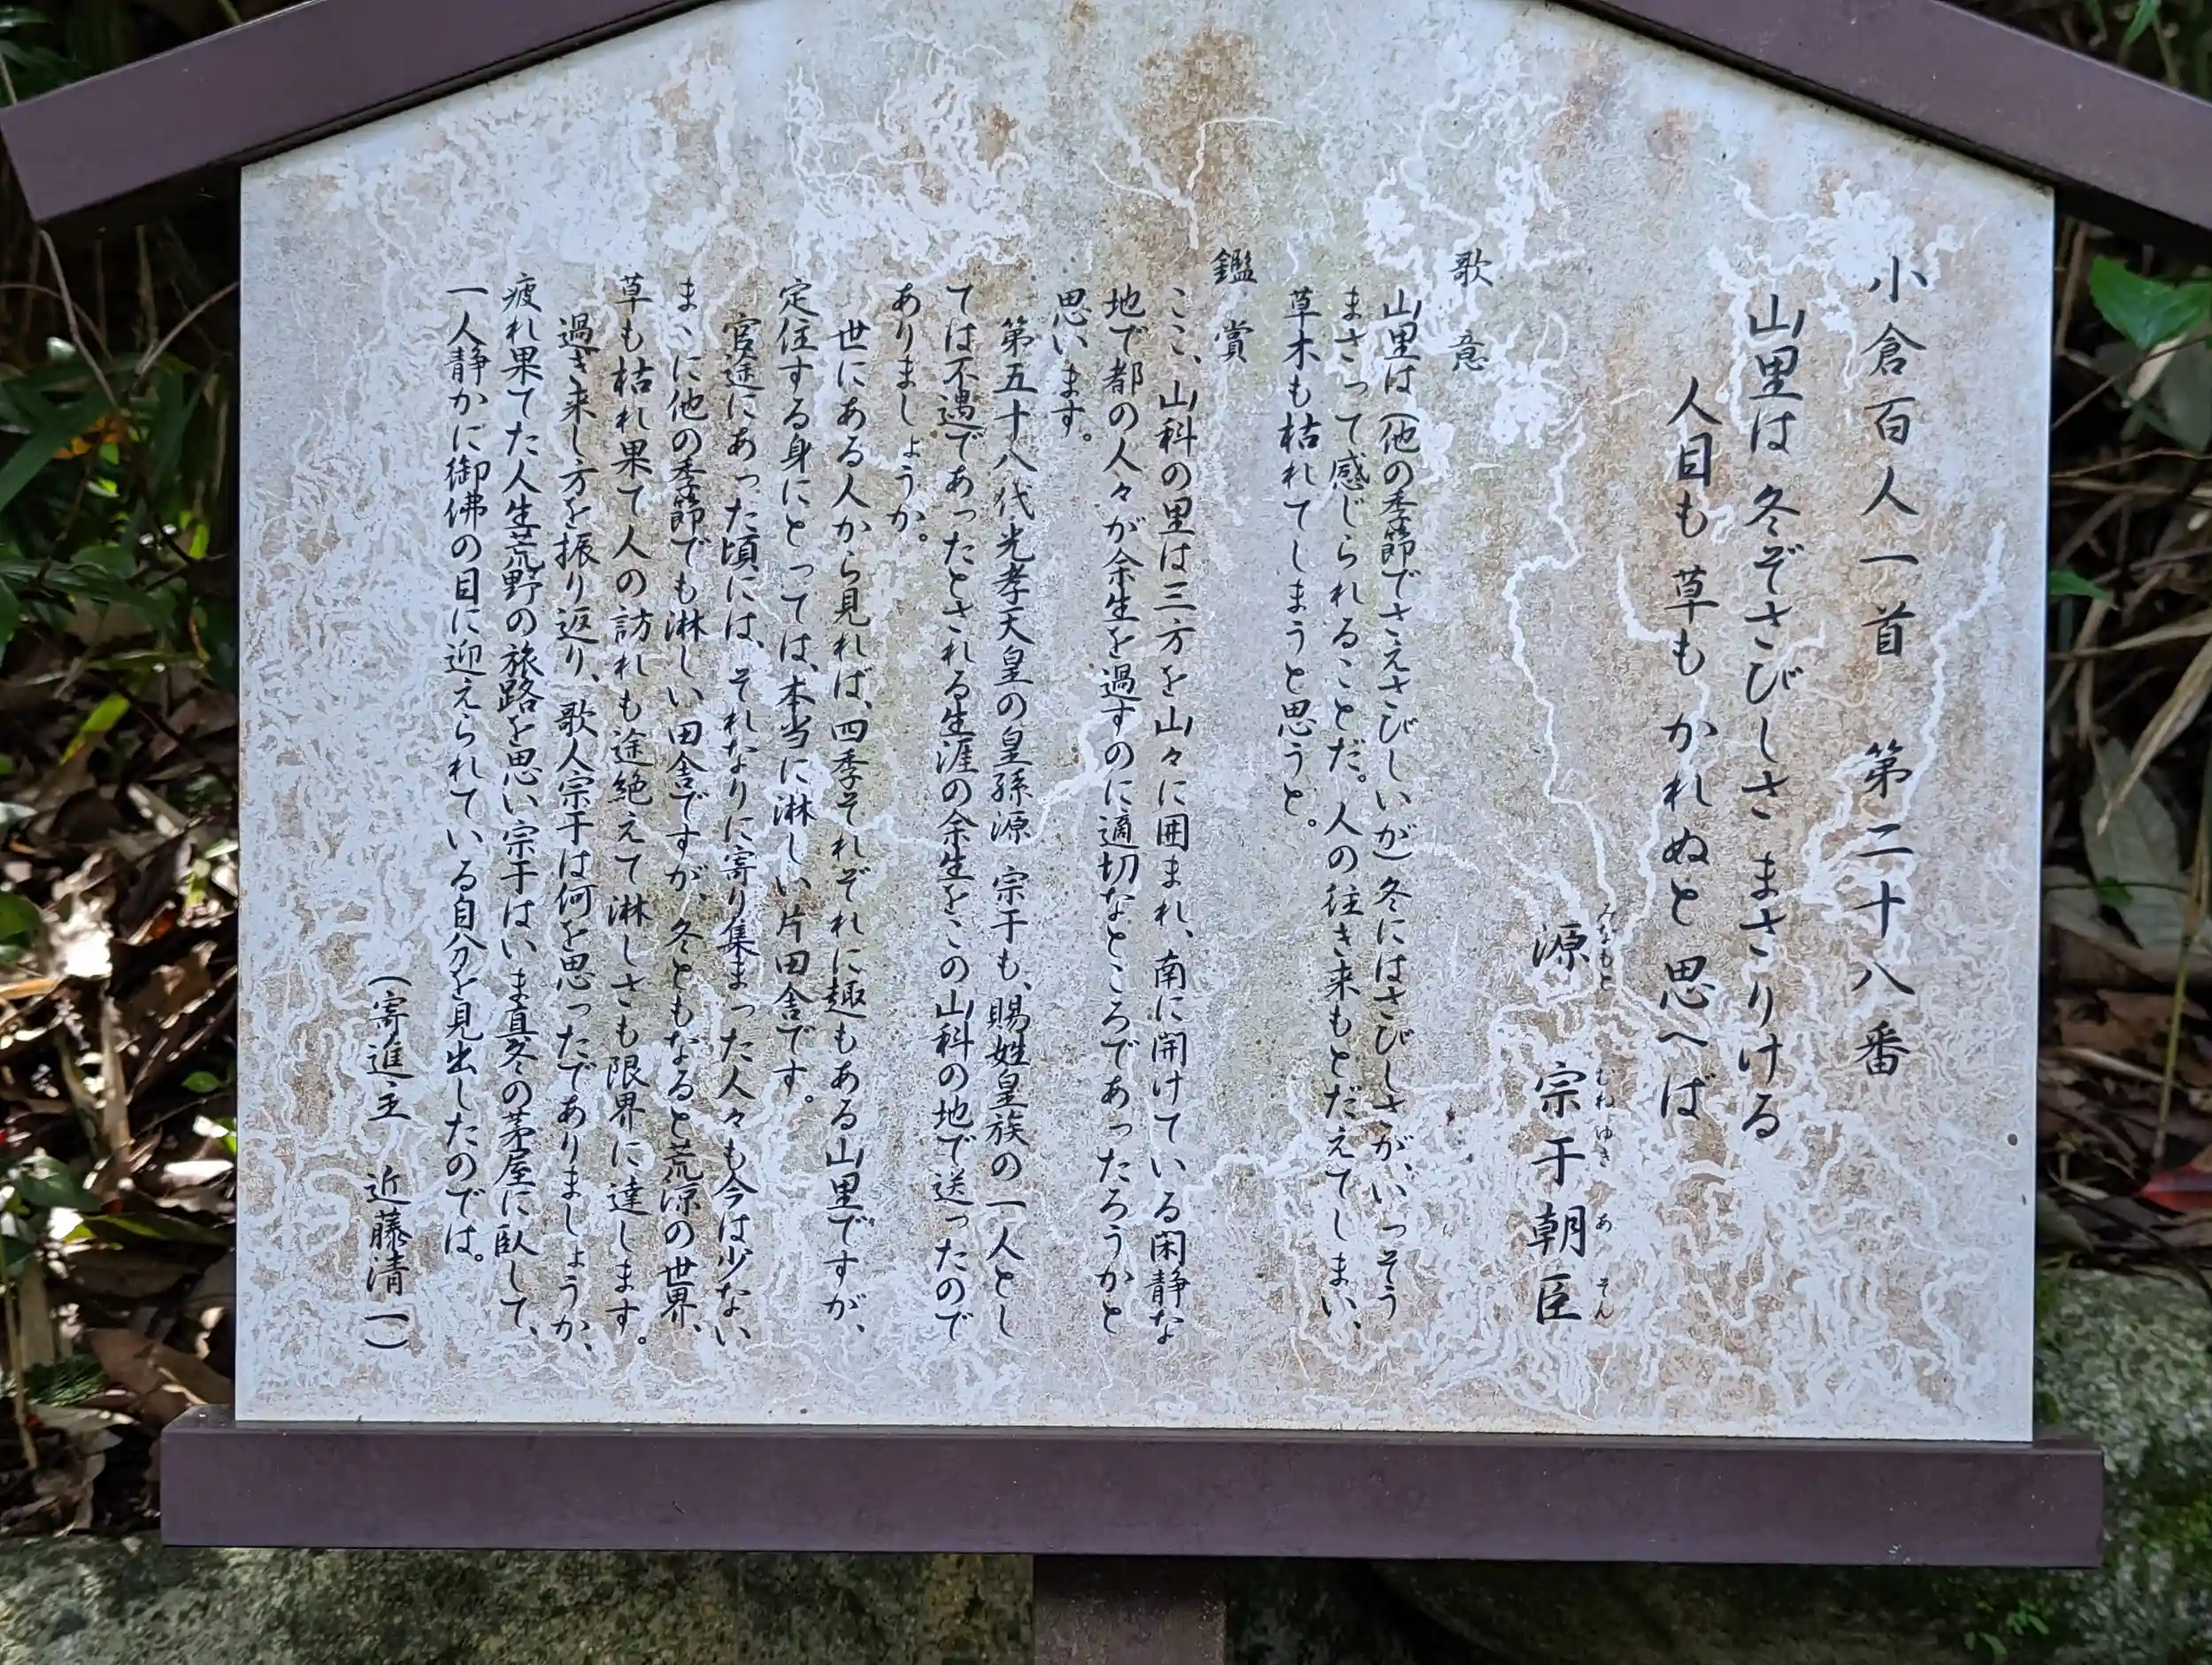 小倉百人一首 第二十八番
山里は 冬ぞさびしさ まさりける
人目も 草も かれぬと 思へば
源 宗于朝臣
みなもと むねゆき あ そん
歌意
山里は(他の季節でさえさびしいが)冬にはさびしさが、いっそう
まさって感じられることだ。人の往き来もとだえてしまい、
草木も枯れてしまうと思うと。
鑑賞
ここ、山科の里は三方を山々に囲まれ、南に開けている閑静な
地で都の人々が余生を過すのに適切なところであったろうかと
思います。
第五十八代光孝天皇の皇孫源 宗于も、賜姓皇族の一人とし
ては不遇であったとされる生涯の余生をこの山科の地で送ったので
ありましょうか。
世にある人から見れば、四季それぞれに趣もある山里ですが、
定住する身にとっては、本当に淋しい片田舎です。
官途にあった頃には、それなりに寄り集まった人々も今は少ない
まゝに他の季節でも淋しい田舎ですが、冬ともなると荒凉の世界、
草も枯れ果て人の訪れも途絶えて淋しさも限界に達します。
過ぎ来し方を振り返り、歌人宗于は何を思ったでありましょうか、
疲れ果てた人生荒野の旅路を思い宗于はいま真冬の茅屋に臥して、
一人静かに御佛の目に迎えられている自分を見出したのでは。
(寄進主 近藤清一)